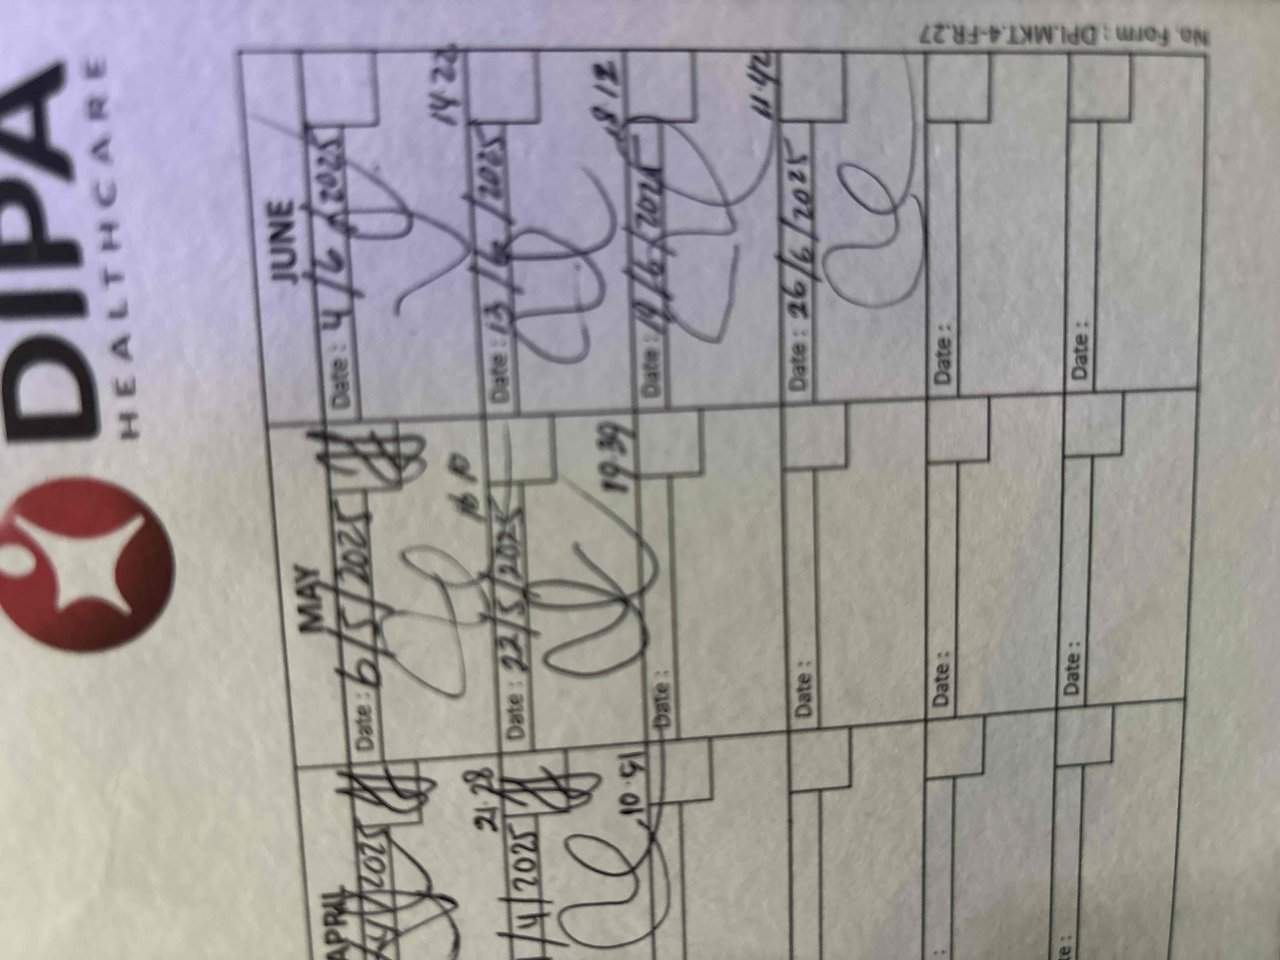 DIPA
HEALTHCARE
No. Form : DPI.MKT.4-FR.27
APRIL
MAY
JUNE
/4/2025
Date : 6/5/2025
Date : 4/6/2025
21.28
16 10
14.22
/4/2025
Date : 22/5/2025
Date : 13/6/2025
10.51
19 39
18 12
Date :
Date : 19/6/2025
11.42
Date :
Date : 26/6/2025
:
Date :
Date :
te :
Date :
Date :